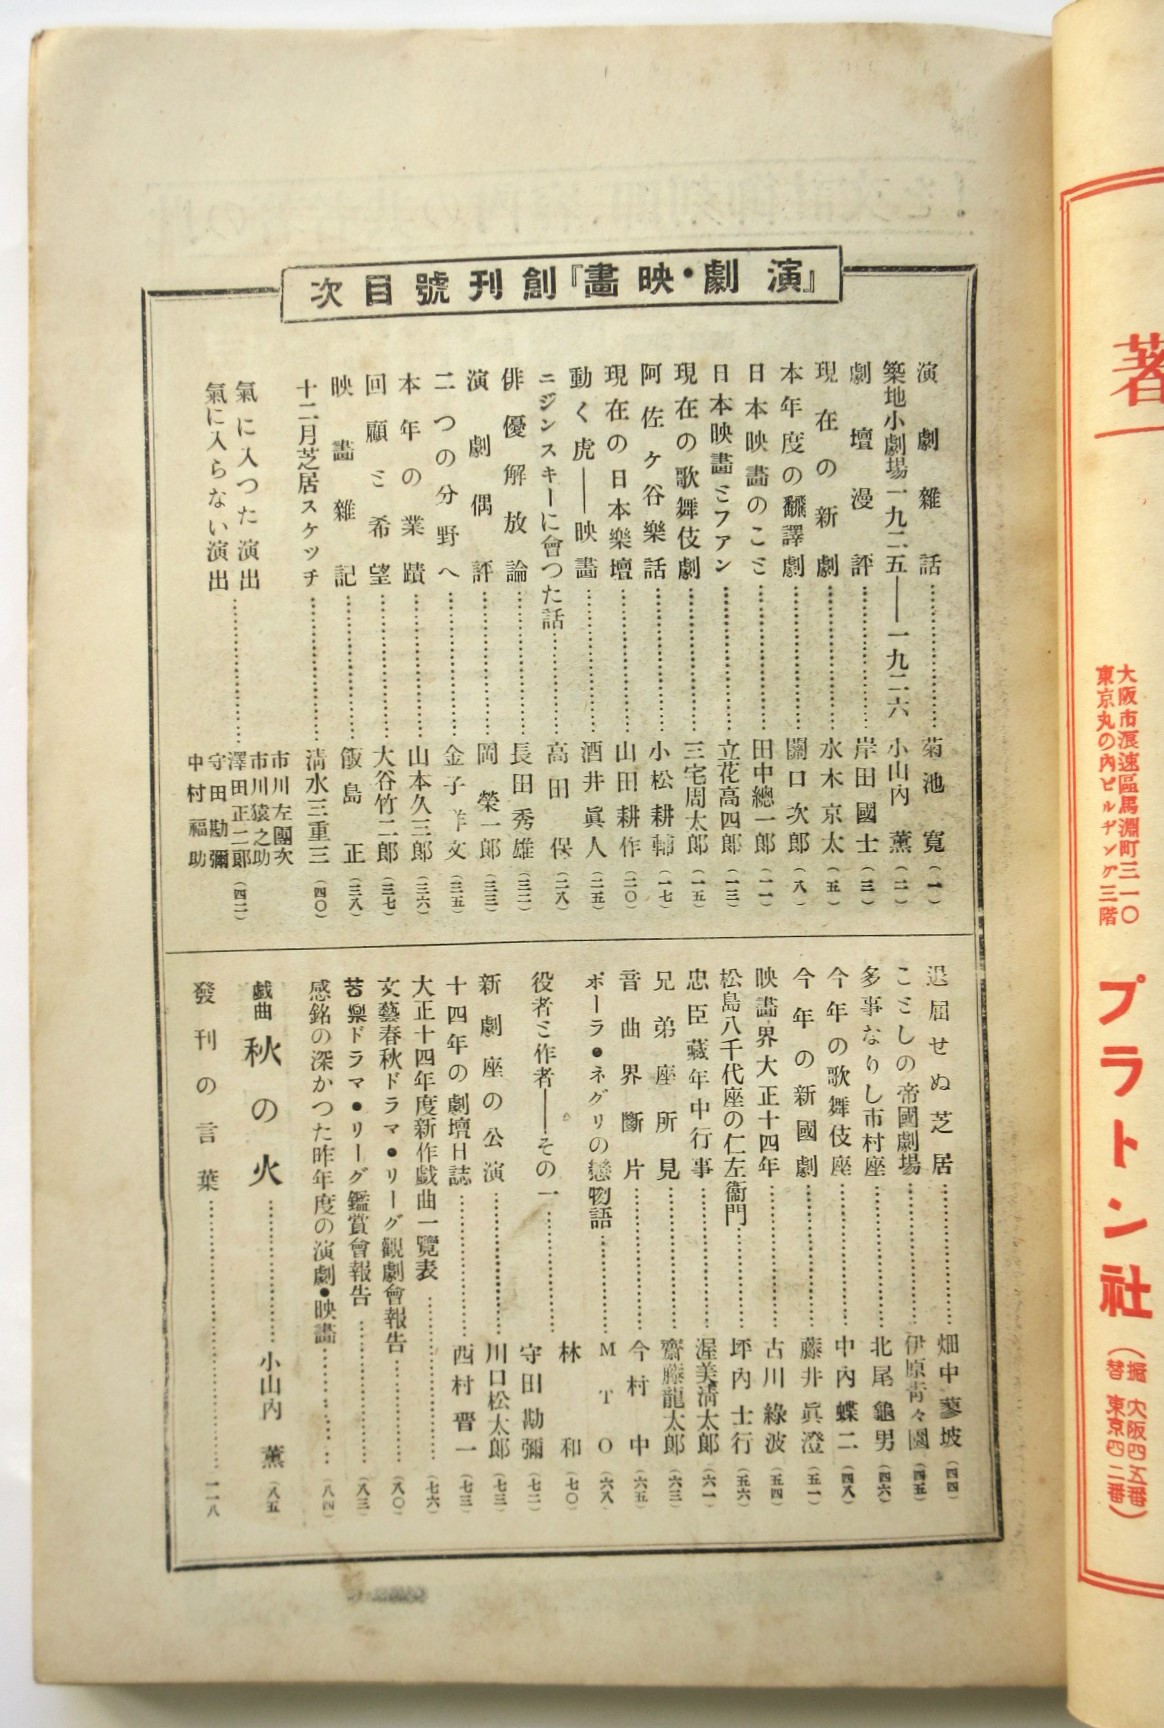 『演劇・映畫』創刊號目次
演劇雜話……菊池寬(一)
築地小劇場一九二五――一九二六 小山內薰(二)
劇壇漫評……岸田國士(三)
現在の新劇……水木京太(五)
本年度の飜譯劇……關口次郎(八)
日本映畫のこと……田中總一郎(一一)
日本映畫とファン……立花高四郎(一三)
現在の歌舞伎劇……三宅周太郎(一五)
阿佐ケ谷樂話……小松耕輔(一七)
現在の日本樂壇……山田耕作(二〇)
動く虎――映畫……酒井眞人(二五)
ニジンスキーに會つた話……高田保(二八)
俳優解放論……長田秀雄(三二)
演劇偶評……岡榮一郎(三三)
二つの分野へ……金子洋文(三五)
本年の業蹟……山本久三郎(三六)
回顧と希望……大谷竹二郎(三七)
映畫雜記……飯島正(三八)
十二月芝居スケッチ……淸水三重三(四〇)
氣に入つた演出
氣に入らない演出……
市川左團次
市川猿之助
澤田正二郎(四二)
守田勘彌
中村福助
退屈せぬ芝居……畑中蓼坡(四四)
ことしの帝國劇場……伊原靑々園(四五)
多事なりし市村座……北尾龜男(四六)
今年の歌舞伎座……中內蝶二(四八)
今年の新國劇……藤井眞澄(五一)
映畫界大正十四年……古川綠波(五四)
松島八千代座の仁左衞門……坪內士行(五六)
忠臣藏年中行事……渥美淸太郎(六一)
兄弟座所見……齋藤龍太郎(六三)
音曲界斷片……今村中(六五)
ポーラ・ネグリの戀物語……MTO(六八)
役者と作者――その一……林和(七〇)
守田勘彌(七二)
新劇座の公演……川口松太郎(七三)
十四年の劇壇日誌……西村晋一(七三)
大正十四年度新作戲曲一覽表……(七六)
文藝春秋ドラマ・リーグ觀劇會報告……(八〇)
苦樂ドラマ・リーグ鑑賞會報告……(八三)
感銘の深かつた昨年度の演劇・映畫……(八四)
戲曲 秋の火……小山內薰(八五)
發刊の言葉……一一八
著
大阪市浪速區馬淵町三一〇
東京丸の內ビルヂング三階
プラトン社
(振替 大阪四五番 東京四二番)